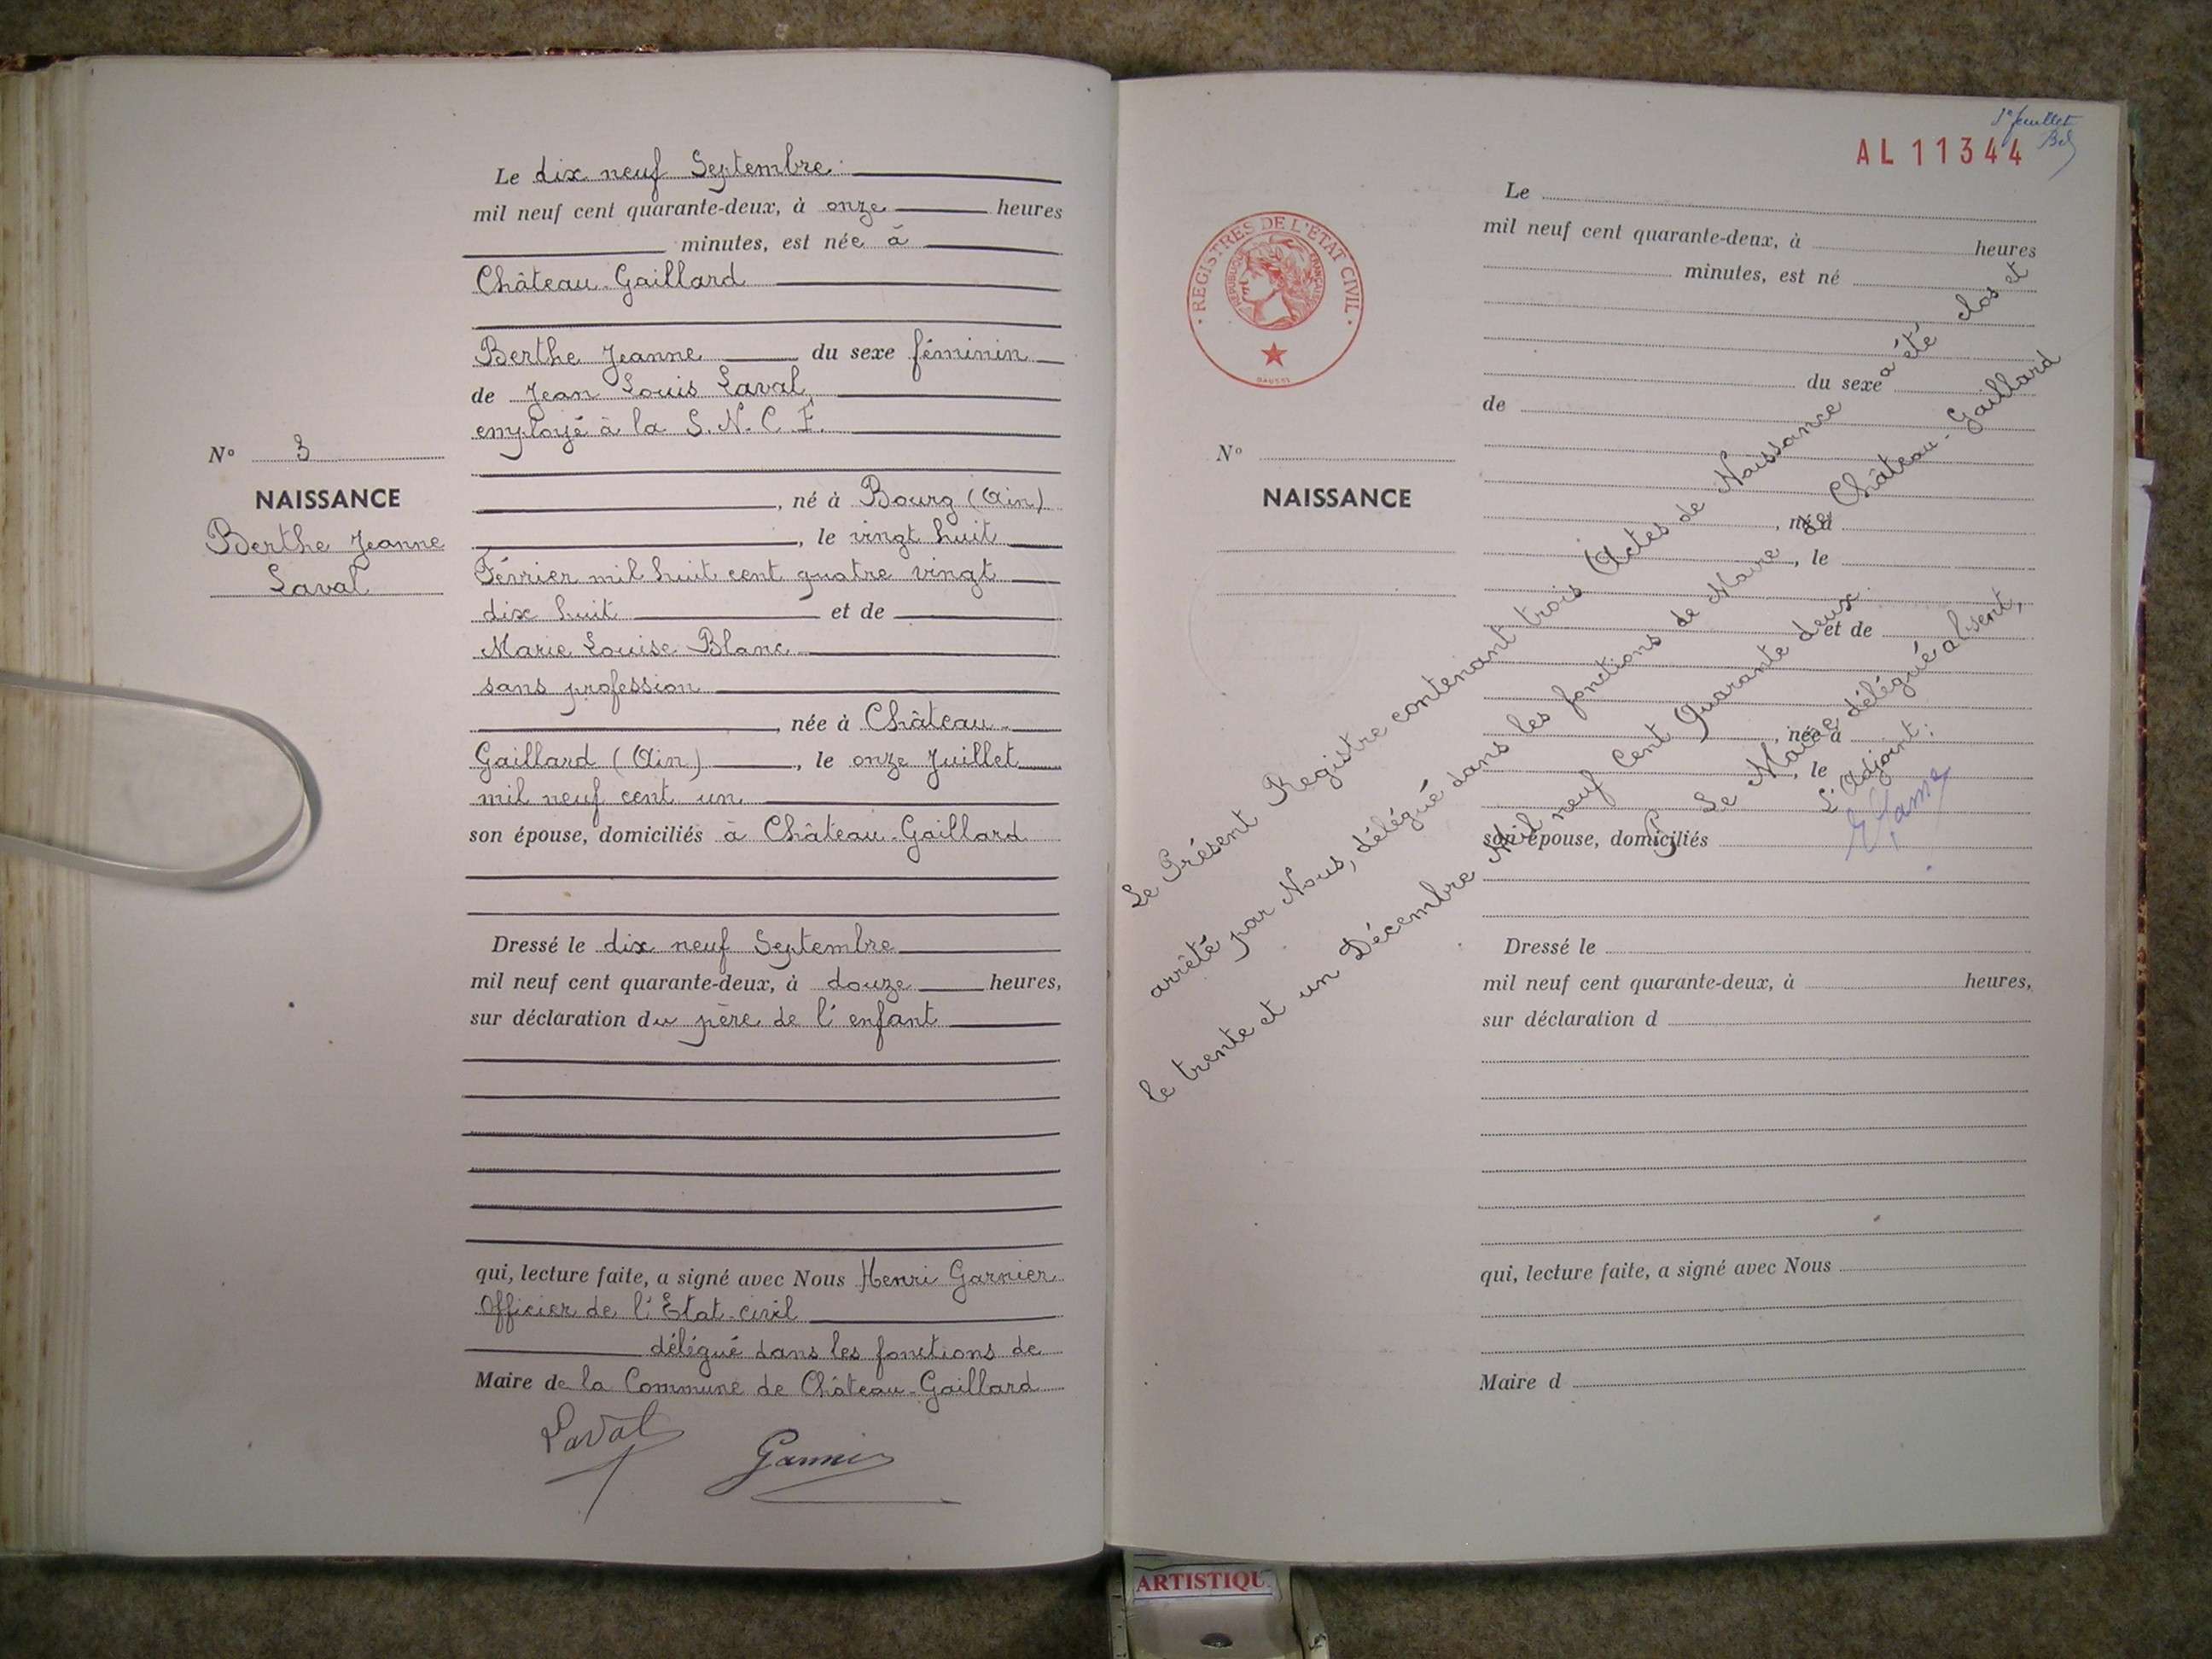 N° 3
NAISSANCE
Berthe Jeanne
Laval
Le dix neuf Septembre
mil neuf cent quarante-deux, à onze heures
minutes, est née à
Château-Gaillard
Berthe Jeanne du sexe féminin
de Jean Louis Laval,
employé à la S.N.C.F.
, né à Bourg (Ain)
, le vingt huit
Février mil huit cent quatre vingt
dix huit et de
Marie Louise Blanc
sans profession
, née à Château-
Gaillard (Ain) , le onze Juillet
mil neuf cent un
son épouse, domiciliés à Château-Gaillard
Dressé le dix neuf Septembre
mil neuf cent quarante-deux, à douze heures,
sur déclaration du père de l'enfant
qui, lecture faite, a signé avec Nous Henri Garnier
Officier de l'Etat-civil
délégué dans les fonctions de
Maire de la Commune de Château-Gaillard
Laval
Garnier
feuillet
AL 11344
REGISTRES DE L'ÉTAT CIVIL
RÉPUBLIQUE FRANÇAISE
N°
NAISSANCE
Le
mil neuf cent quarante-deux, à heures
minutes, est né
du sexe
de
, né à
, le
et de
, née à
, le
son épouse, domiciliés
Dressé le
mil neuf cent quarante-deux, à heures,
sur déclaration d
qui, lecture faite, a signé avec Nous
Maire d
Le Présent Registre contenant trois Actes de Naissance a été clos et
arrêté par Nous, délégué dans les fonctions de Maire de Château-Gaillard
le trente et un Décembre Mil neuf Cent Quarante deux.
Le Maire délégué absent,
L'Adjoint:
ARTISTIQU